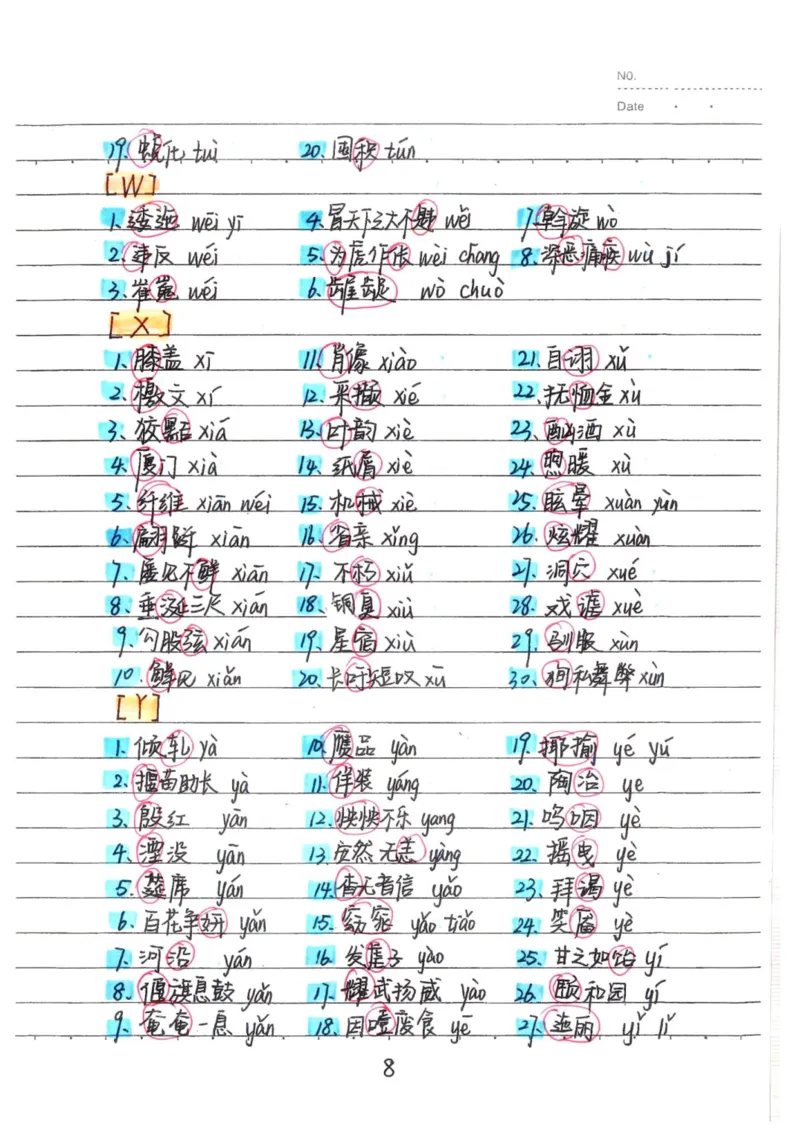 No.
Date
19. 蜕化 tuì 20. 囤积 tún
[W]
1. 逶迤 wēi yī 4. 冒天下之大不韪 wěi 7. 斡旋 wò
2. 违反 wéi 5. 为虎作伥 wèi chāng 8. 深恶痛疾 wù jí
3. 崔嵬 wéi 6. 龌龊 wò chuò
[X]
1. 膝盖 xī 11. 肖像 xiào 21. 自诩 xǔ
2. 檄文 xí 12. 采撷 xié 22. 抚恤金 xù
3. 狡黠 xiá 13. 叶韵 xiè 23. 酗酒 xù
4. 厦门 xià 14. 纸屑 xiè 24. 煦暖 xù
5. 纤维 xiān wéi 15. 机械 xiè 25. 眩晕 xuàn yùn
6. 翩跹 xiān 16. 省亲 xǐng 26. 炫耀 xuàn
7. 屡见不鲜 xiān 17. 不朽 xiǔ 27. 洞穴 xué
8. 垂涎三尺 xián 18. 铜臭 xiù 28. 戏谑 xuè
9. 勾股弦 xián 19. 星宿 xiù 29. 驯服 xùn
10. 鲜见 xiǎn 20. 长吁短叹 xū 30. 徇私舞弊 xùn
[Y]
1. 倾轧 yà 10. 赝品 yàn 19. 揶揄 yé yú
2. 揠苗助长 yà 11. 佯装 yáng 20. 陶冶 ye
3. 殷红 yān 12. 怏怏不乐 yang 21. 呜咽 yè
4. 湮没 yān 13. 安然无恙 yàng 22. 摇曳 yè
5. 筵席 yán 14. 杳无音信 yǎo 23. 拜谒 yè
6. 百花争妍 yán 15. 窈窕 yǎo tiǎo 24. 笑靥 yè
7. 河沿 yán 16. 发疟子 yào 25. 甘之如饴 yí
8. 偃旗息鼓 yǎn 17. 耀武扬威 yào 26. 颐和园 yí
9. 奄奄一息 yǎn 18. 因噎废食 yē 27. 迤丽 yǐ lǐ
8